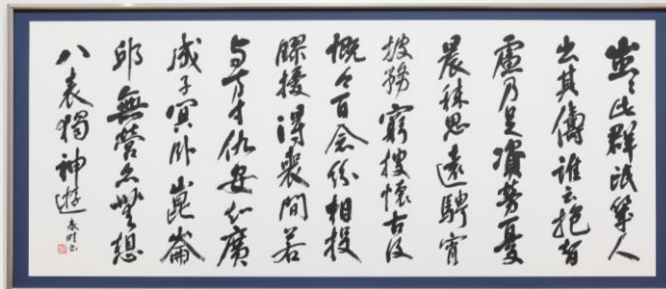 蚩々此群氓幾人
出其儔誰云抱智
慮乃足資勞憂
晨秣思遠騁宵
披務窮搜懷古復
慨今百念紛相投
膠擾得喪間若
与方寸仇安知廣
成子冥卧崑崙
邱無營亦無想
八表獨神遊